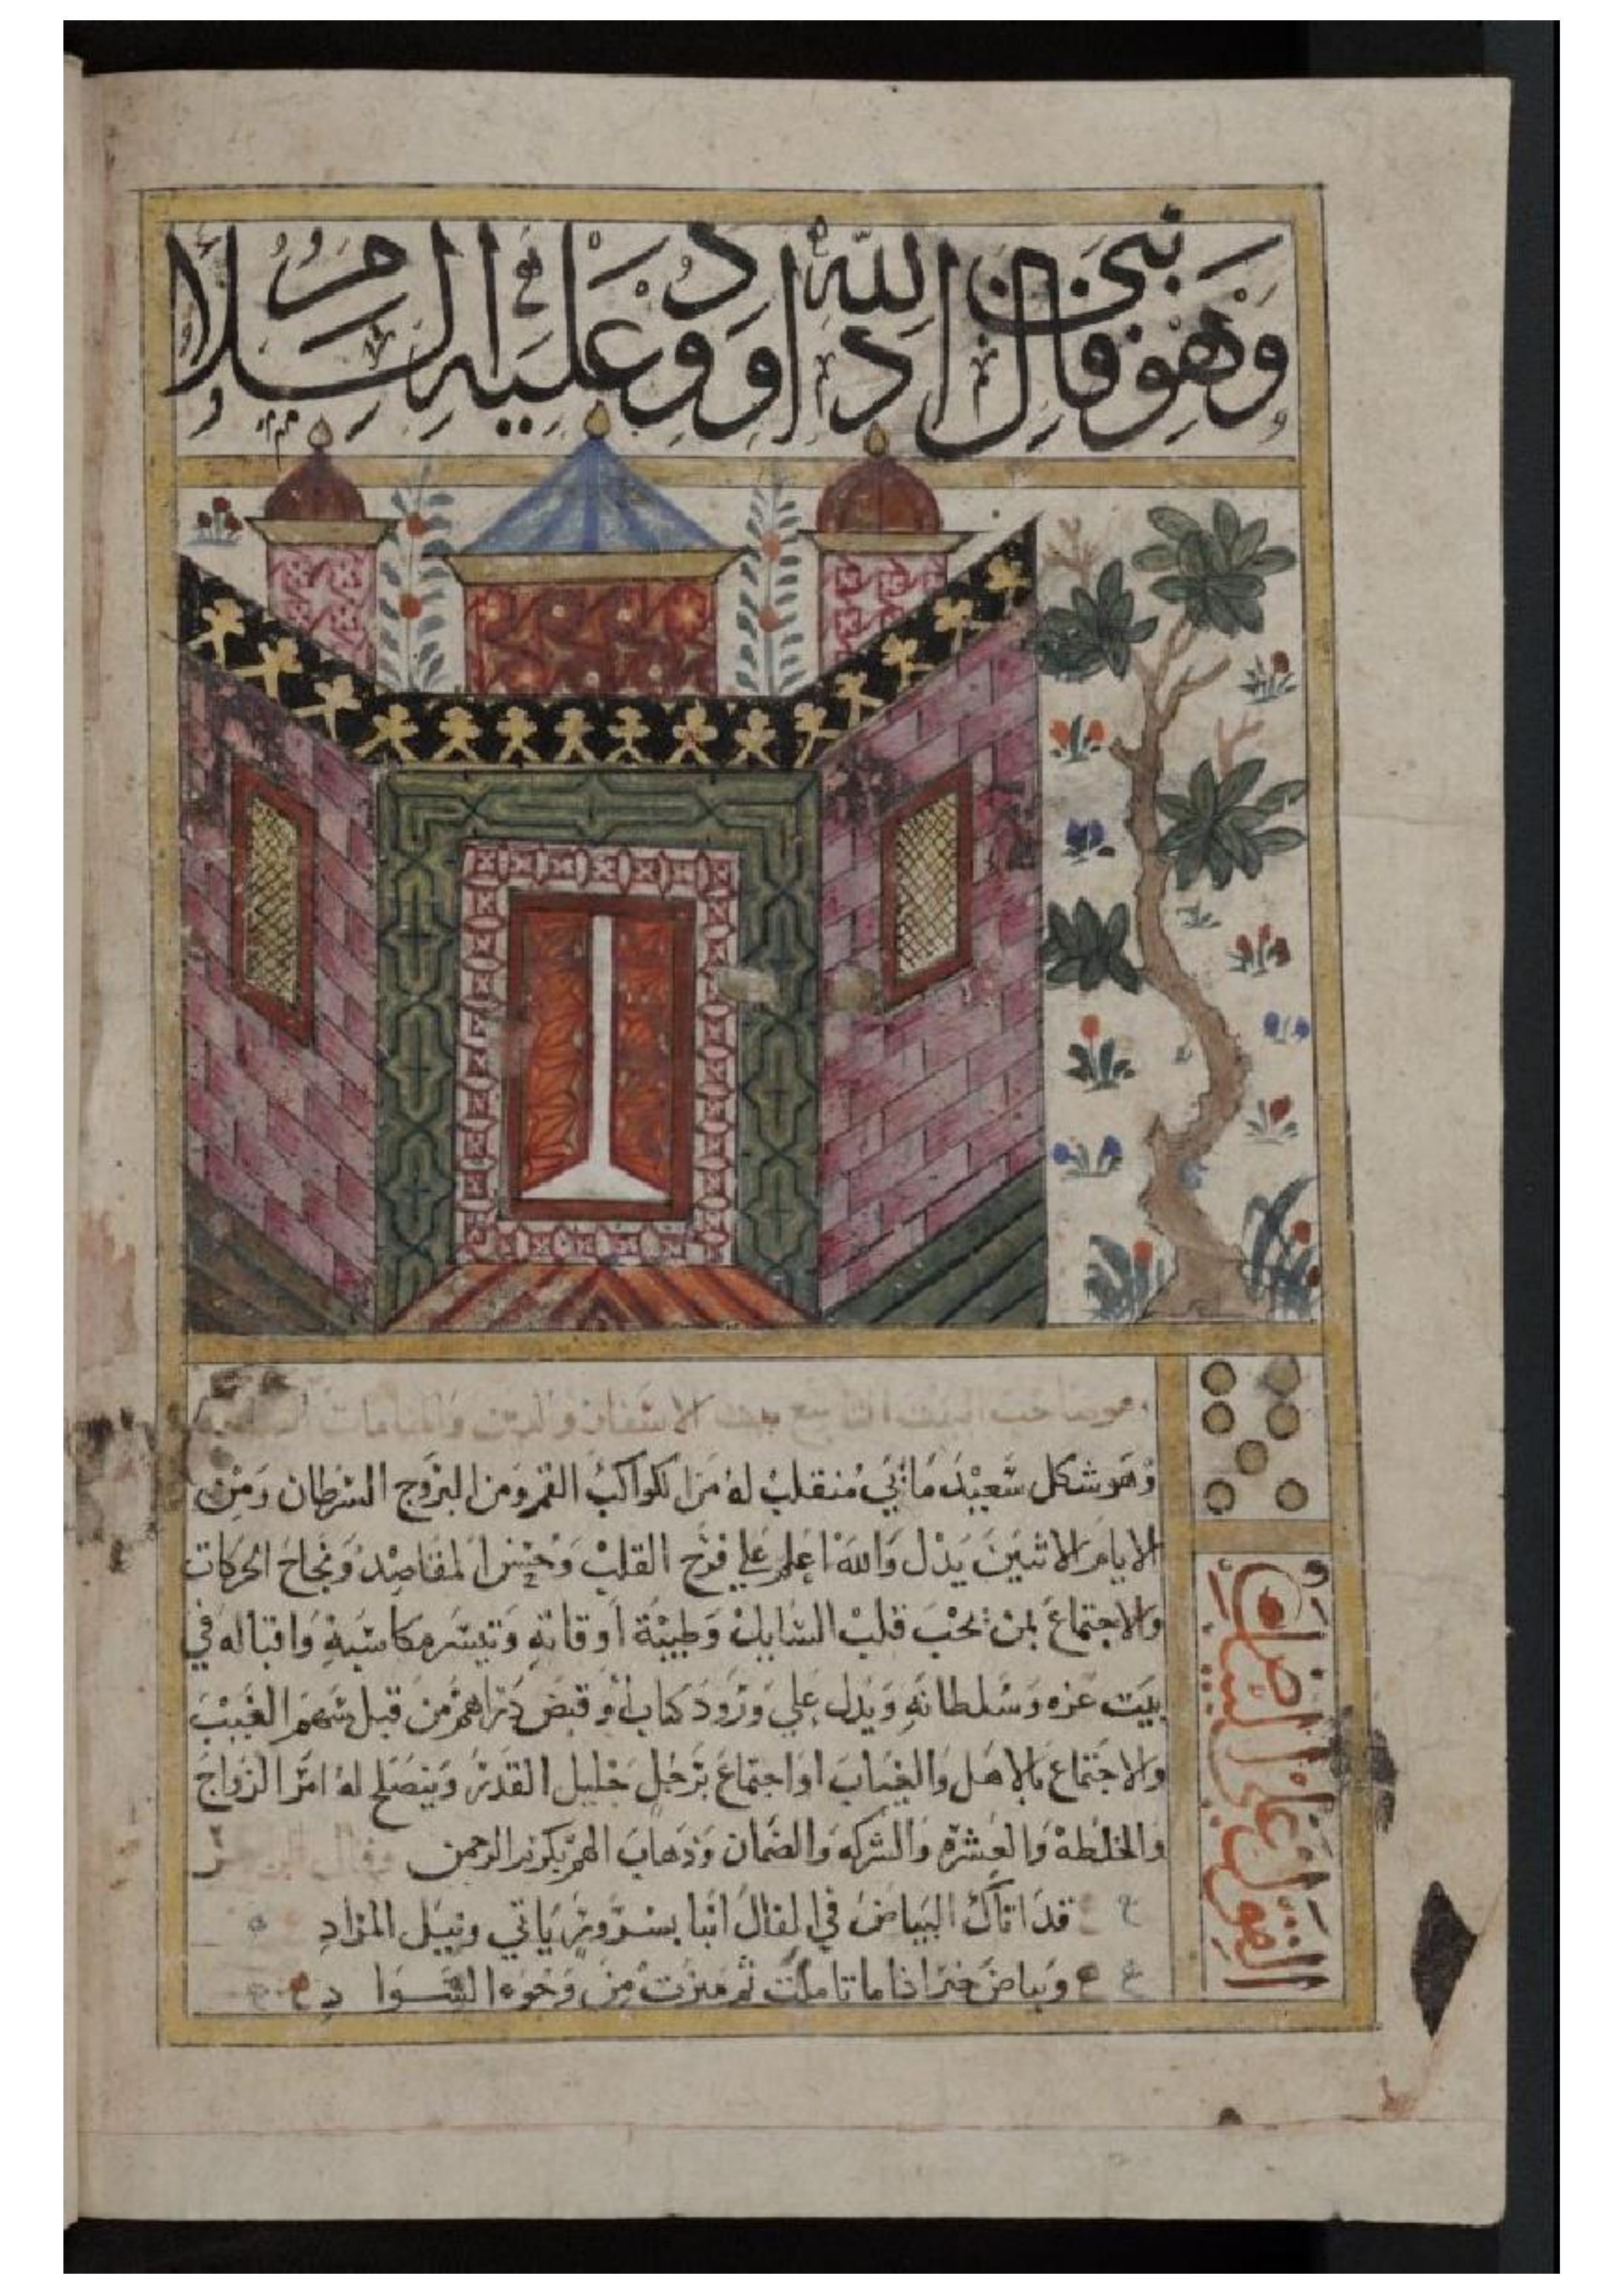 نبي الله داود
وهو فال داوود عليه السلام
هو صاحب البيت التاسع بيت الاسفار والدين والمنامات
وهو شكل سعيد مائي منقلب له من الكواكب القمر ومن البروج السرطان ومن
الايام الاثنين يدل والله اعلم علي فرح القلب وحسن المقاصد ونجاح الحركات
والاجتماع بمن يحب قلب السايل وطيبة أوقاته وتيسر مكاسبه واقباله في
بيت عزه وسلطانه ويدل علي ورود كتاب أو قبض دراهم من قبل سهم الغيب
والاجتماع بالاهل والغياب او اجتماع برجل جليل القدر وينصلح له امر الزواج
والخلطه والعشره والشركه والضمان وذهاب الهم بكرم الرحمن
قد اتاك البياض في الفال انبا بسرور ياتي ونيل المراد
وبياض خير اذا ما تاملت ثم ميزت من وجوه السواد
القول علي البياض